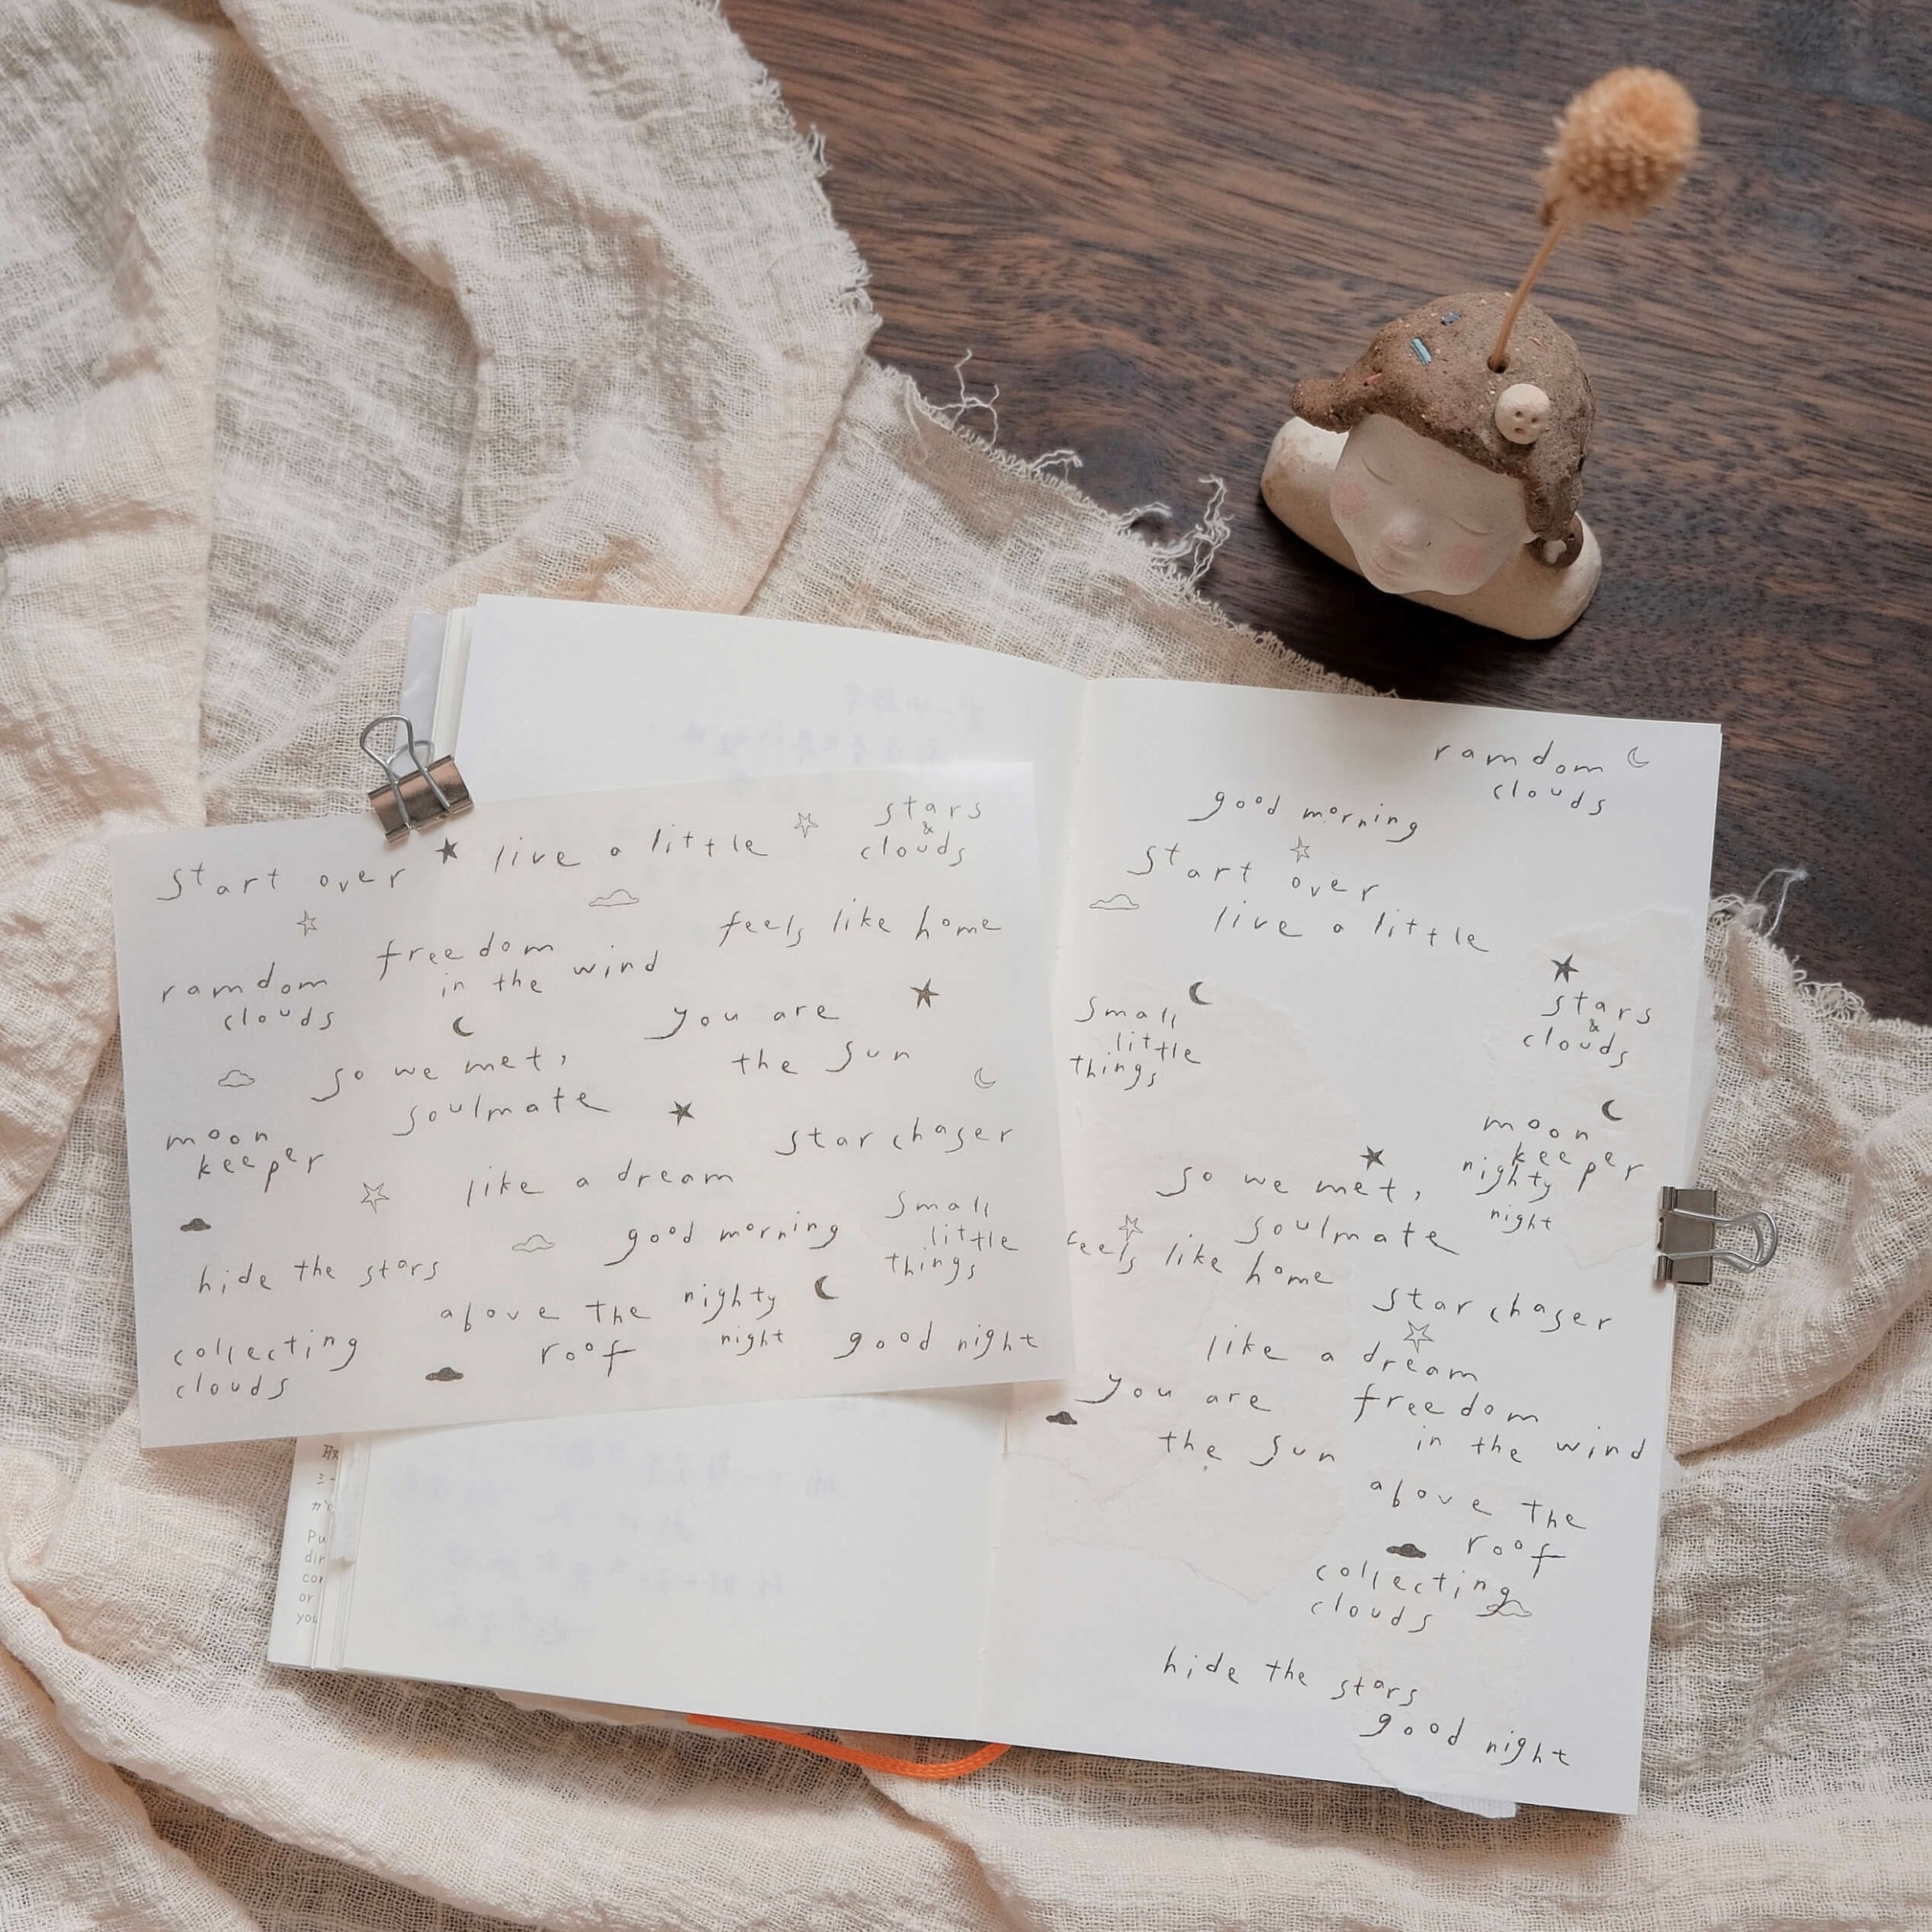 start over
live a little
stars
&
clouds
ramdom
clouds
freedom
in the wind
feels like home
so we met,
soulmate
you are
the sun
moon
keeper
like a dream
star chaser
hide the stars
good morning
small
little
things
collecting
clouds
above the
roof
nighty
night
good night
取
Pu
dir
co
or
you
ramdom
clouds
good morning
start over
live a little
small
little
things
stars
&
clouds
moon
keeper
nighty
night
so we met,
soulmate
feels like home
star chaser
like a dream
you are
the sun
freedom
in the wind
above the
roof
collecting
clouds
hide the stars
good night